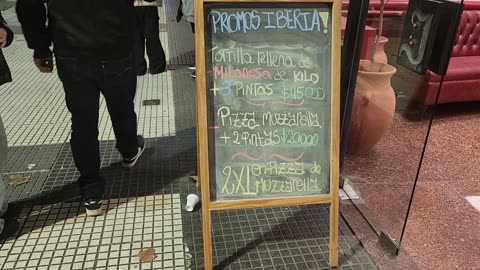 PROMOS IBERIA!
Tortilla rellena de
MILANESA de KILO
+ 3 PINTAS $45000
Pizza muzzarella
+ 2 PINTAS $20000
2XL en Pizza de
MUZZARELLA